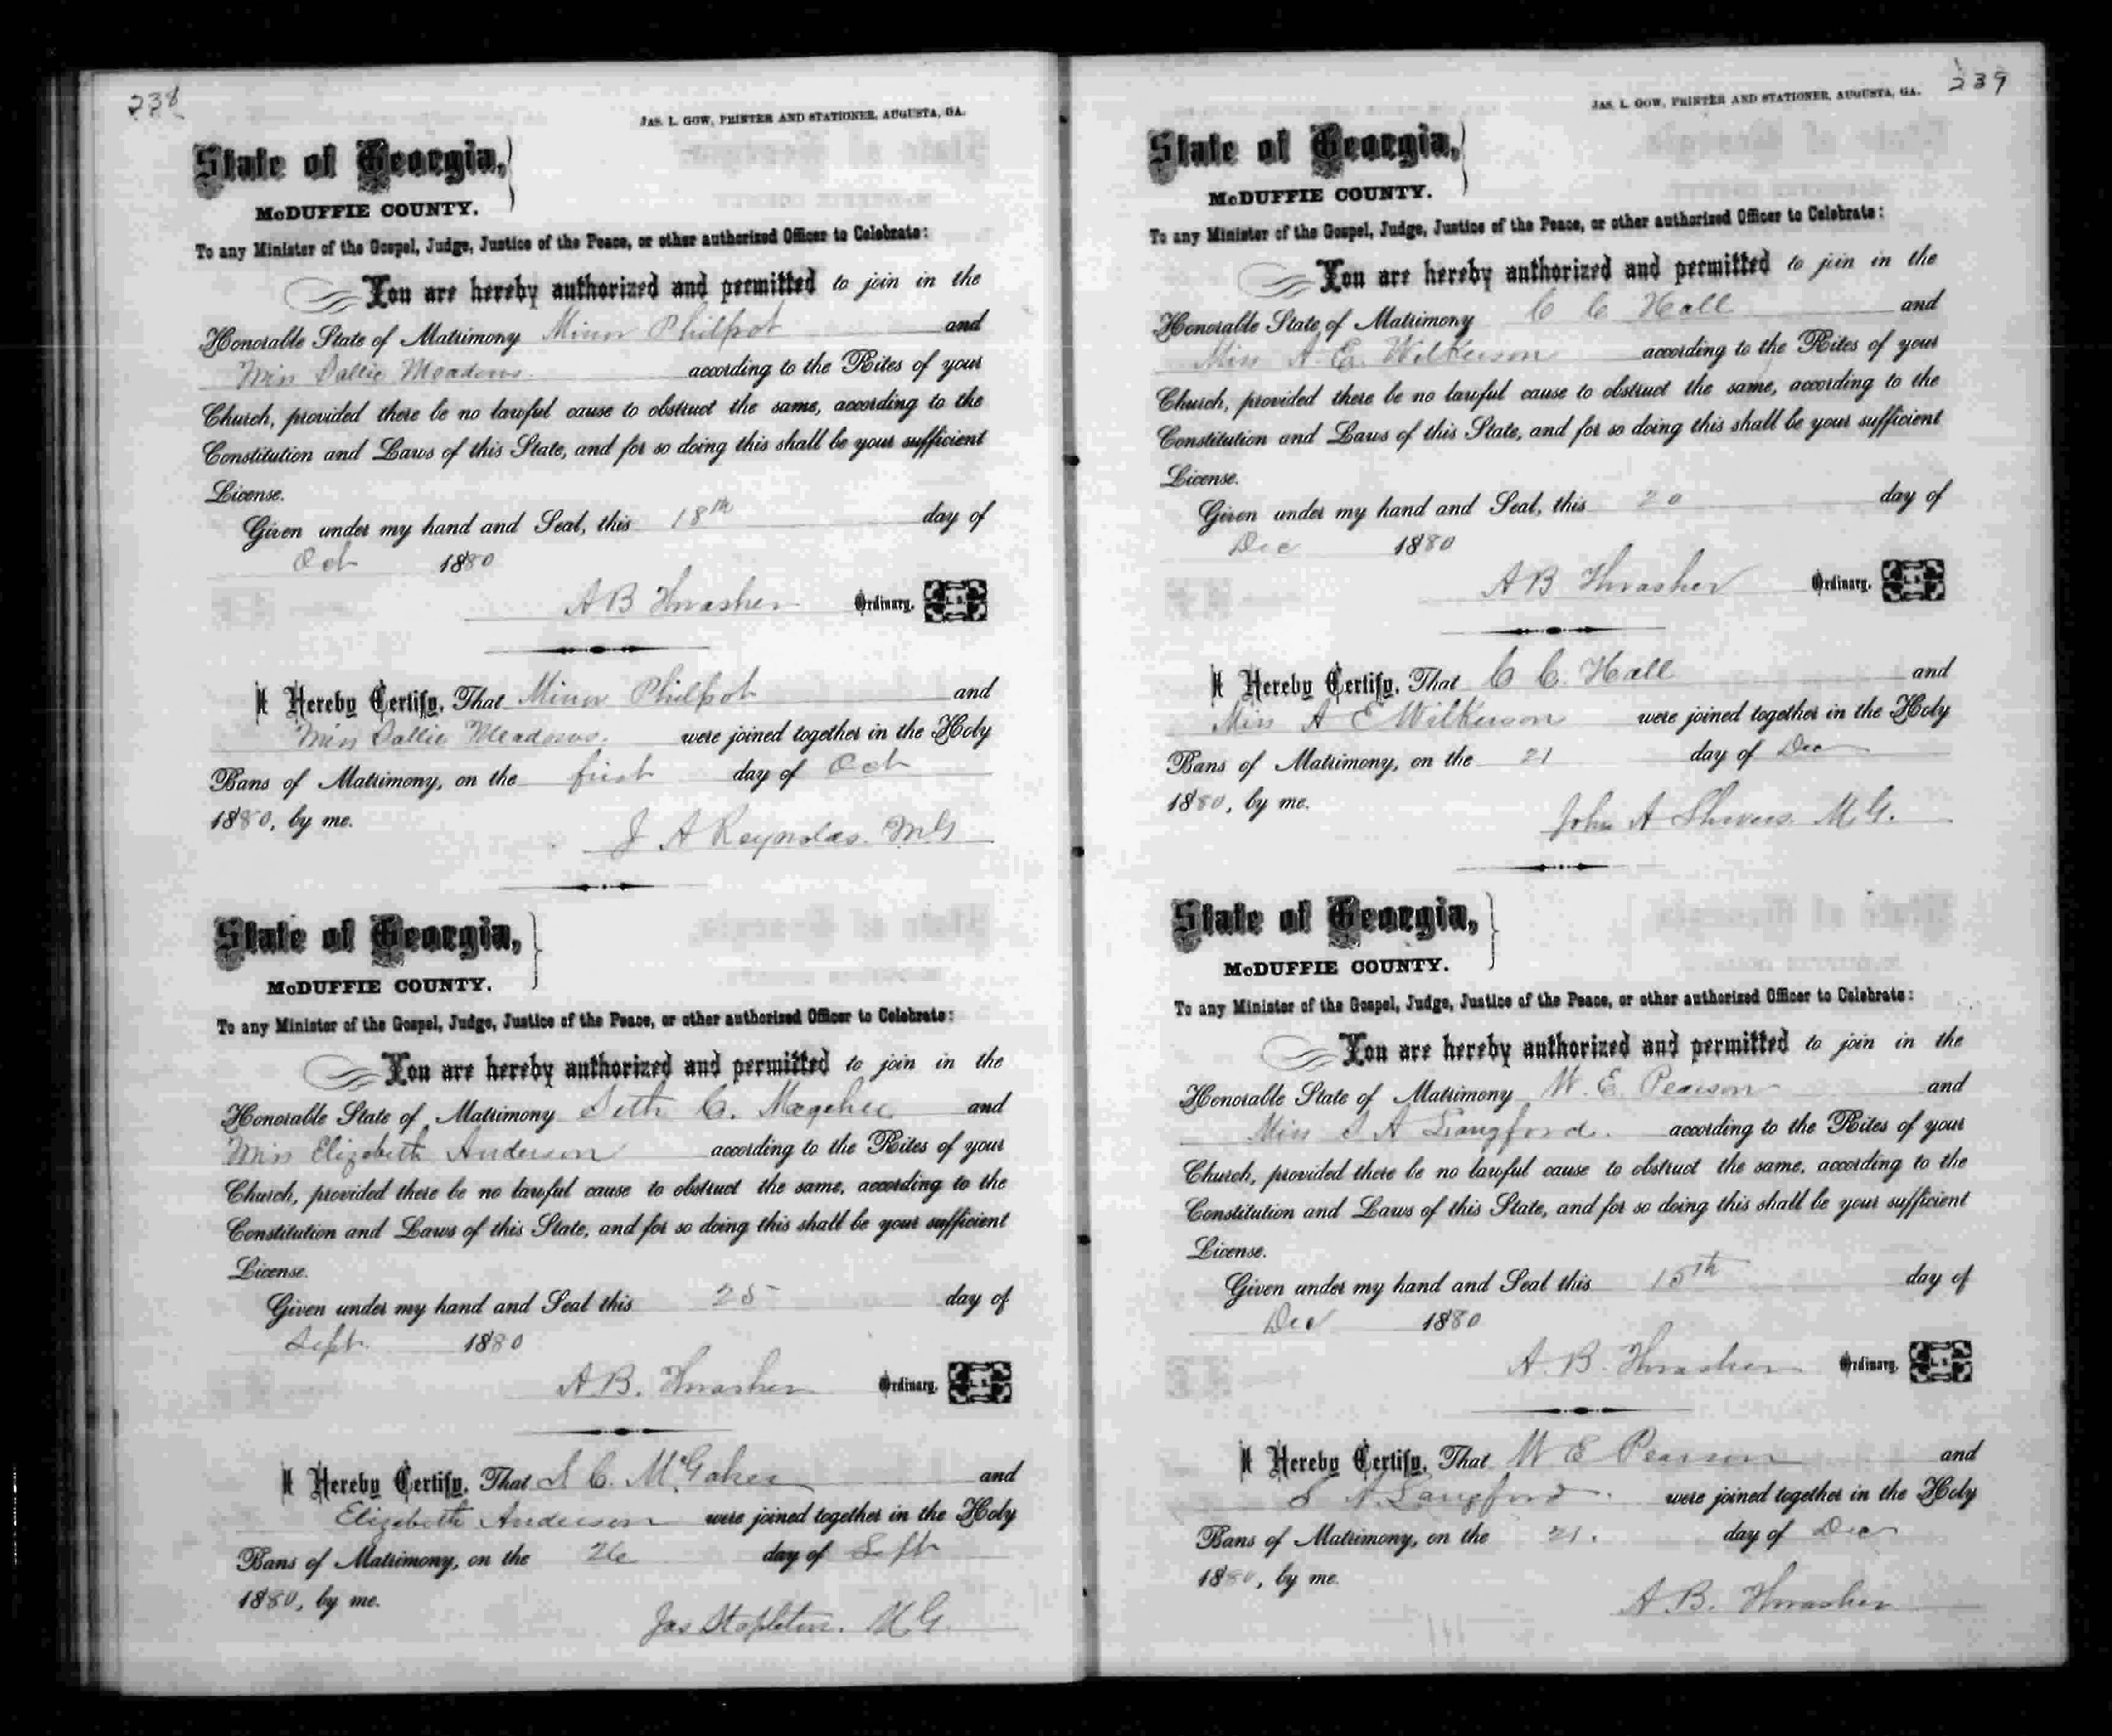 238
JAS. L. GOW, PRINTER AND STATIONER, AUGUSTA, GA.
State of Georgia,
McDUFFIE COUNTY.
To any Minister of the Gospel, Judge, Justice of the Peace, or other authorized Officer to Celebrate:
You are hereby authorized and permitted to join in the
Honorable State of Matrimony Minor Philpot and
Miss Sallie Meadows. according to the Rites of your
Church, provided there be no lawful cause to obstruct the same, according to the
Constitution and Laws of this State, and for so doing this shall be your sufficient
License.
Given under my hand and Seal, this 18th day of
Oct 1880
A B Thrasher Ordinary. L. S.
I Hereby Certify, That Minor Philpot and
Miss Sallie Meadows. were joined together in the Holy
Bans of Matrimony, on the first day of Oct
1880, by me.
J A Reynolds. M G
State of Georgia,
McDUFFIE COUNTY.
To any Minister of the Gospel, Judge, Justice of the Peace, or other authorized Officer to Celebrate:
You are hereby authorized and permitted to join in the
Honorable State of Matrimony Seth C. Magehee and
Miss Elizabeth Anderson according to the Rites of your
Church, provided there be no lawful cause to obstruct the same, according to the
Constitution and Laws of this State, and for so doing this shall be your sufficient
License.
Given under my hand and Seal this 25 day of
Sept. 1880
A B. Thrasher Ordinary. L. S.
I Hereby Certify, That S. C. McGahee and
Elizabeth Anderson were joined together in the Holy
Bans of Matrimony, on the 26 day of Sept
1880, by me.
Jas Stapleton. M G.
239
JAS. L. GOW, PRINTER AND STATIONER, AUGUSTA, GA.
State of Georgia,
McDUFFIE COUNTY.
To any Minister of the Gospel, Judge, Justice of the Peace, or other authorized Officer to Celebrate:
You are hereby authorized and permitted to join in the
Honorable State of Matrimony C C Hall and
Miss A. E. Wilkerson according to the Rites of your
Church, provided there be no lawful cause to obstruct the same, according to the
Constitution and Laws of this State, and for so doing this shall be your sufficient
License.
Given under my hand and Seal, this 20 day of
Dec 1880
A B Thrasher Ordinary. L. S.
I Hereby Certify, That C C. Hall and
Miss A E Wilkerson were joined together in the Holy
Bans of Matrimony, on the 21 day of Dec
1880, by me.
John A Shivers M. G.
State of Georgia,
McDUFFIE COUNTY.
To any Minister of the Gospel, Judge, Justice of the Peace, or other authorized Officer to Celebrate:
You are hereby authorized and permitted to join in the
Honorable State of Matrimony W. E. Pearson and
Miss S A Langford. according to the Rites of your
Church, provided there be no lawful cause to obstruct the same, according to the
Constitution and Laws of this State, and for so doing this shall be your sufficient
License.
Given under my hand and Seal this 15th day of
Dec 1880
A. B. Thrasher Ordinary. L. S.
I Hereby Certify, That W E Pearson and
S A. Langford. were joined together in the Holy
Bans of Matrimony, on the 21. day of Dec
1880, by me.
A. B. Thrasher